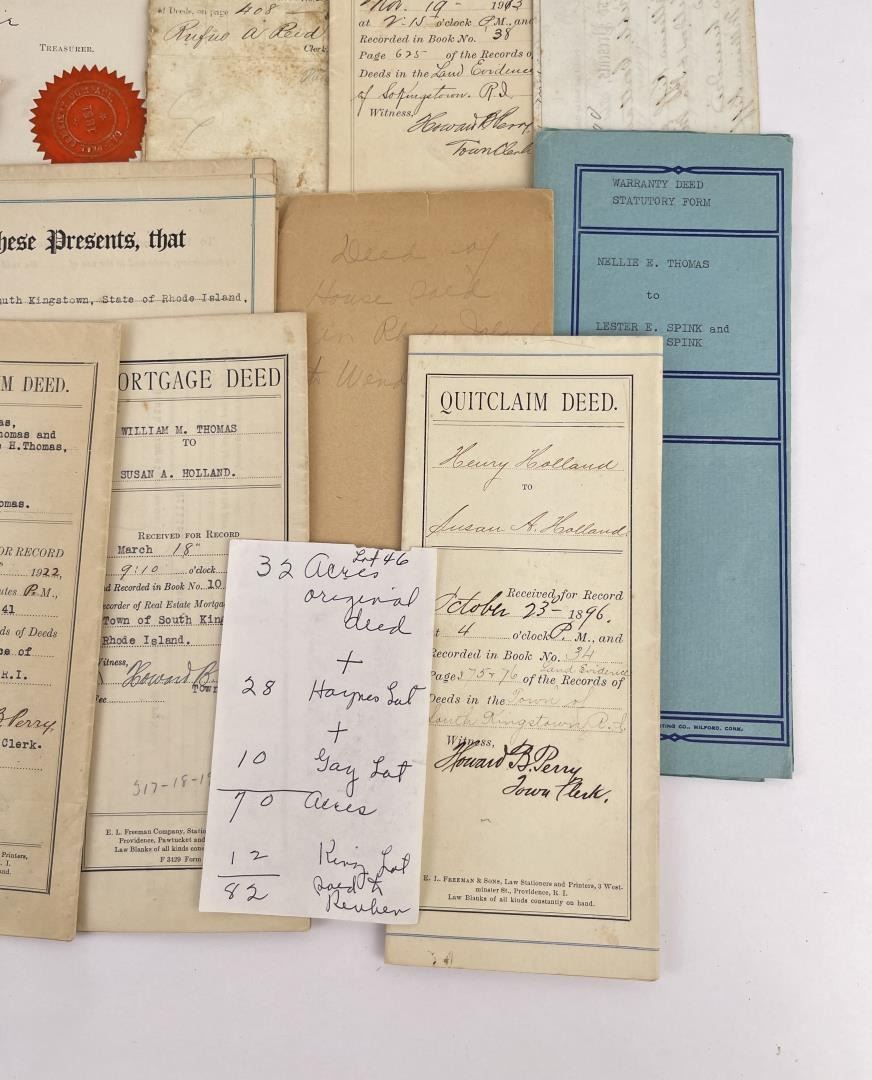 TREASURER.
of Deeds, on page 408
Rufus A Reid
Clerk
Nov. 19 - 1903
at 2:15 o'clock P.M., and
Recorded in Book No. 38
Page 625 of the Records of
Deeds in the Land Evidence
of So. Kingstown. R.I.
Witness,
Howard B. Perry
Town Clerk
hese Presents, that
uth Kingstown, State of Rhode Island,
Deed of
House sold
in Rhode Island
to Wend
WARRANTY DEED
STATUTORY FORM
NELLIE E. THOMAS
to
LESTER E. SPINK and
SPINK
TING CO., MILFORD, CONN.
IM DEED.
as,
homas and
e H.Thomas,
omas.
OR RECORD
1922,
utes P.M.,
41
ds of Deeds
ce of
R.I.
B. Perry
Clerk.
Printers,
I.
and.
ORTGAGE DEED
WILLIAM M. THOMAS
TO
SUSAN A. HOLLAND.
RECEIVED FOR RECORD
March 18"
9:10 o'clock
nd Recorded in Book No. 10
ecorder of Real Estate Mortga
Town of South King
Rhode Island.
Witness,
Howard B.
Town
Fee
517-18-19
E. L. FREEMAN COMPANY, Statio
Providence, Pawtucket and
Law Blanks of all kinds const
F 3429 Form
QUITCLAIM DEED.
Henry Holland
TO
Susan A. Holland.
Received for Record
October 23- 1896.
at 4 o'clock P. M., and
Recorded in Book No. 34
Page 75+76 of the Land Evidence Records of
Deeds in the Town of
South Kingstown, R.I.
Witness,
Howard B. Perry
Town Clerk.
E. L. FREEMAN & SONS, Law Stationers and Printers, 3 West-
minster St., Providence, R. I.
Law Blanks of all kinds constantly on hand.
Lot 46
32 Acres
original
deed
+
28 Haynes Lot
+
10 Gay Lot
70 Acres
12 King Lot
82 sold to
Reuben